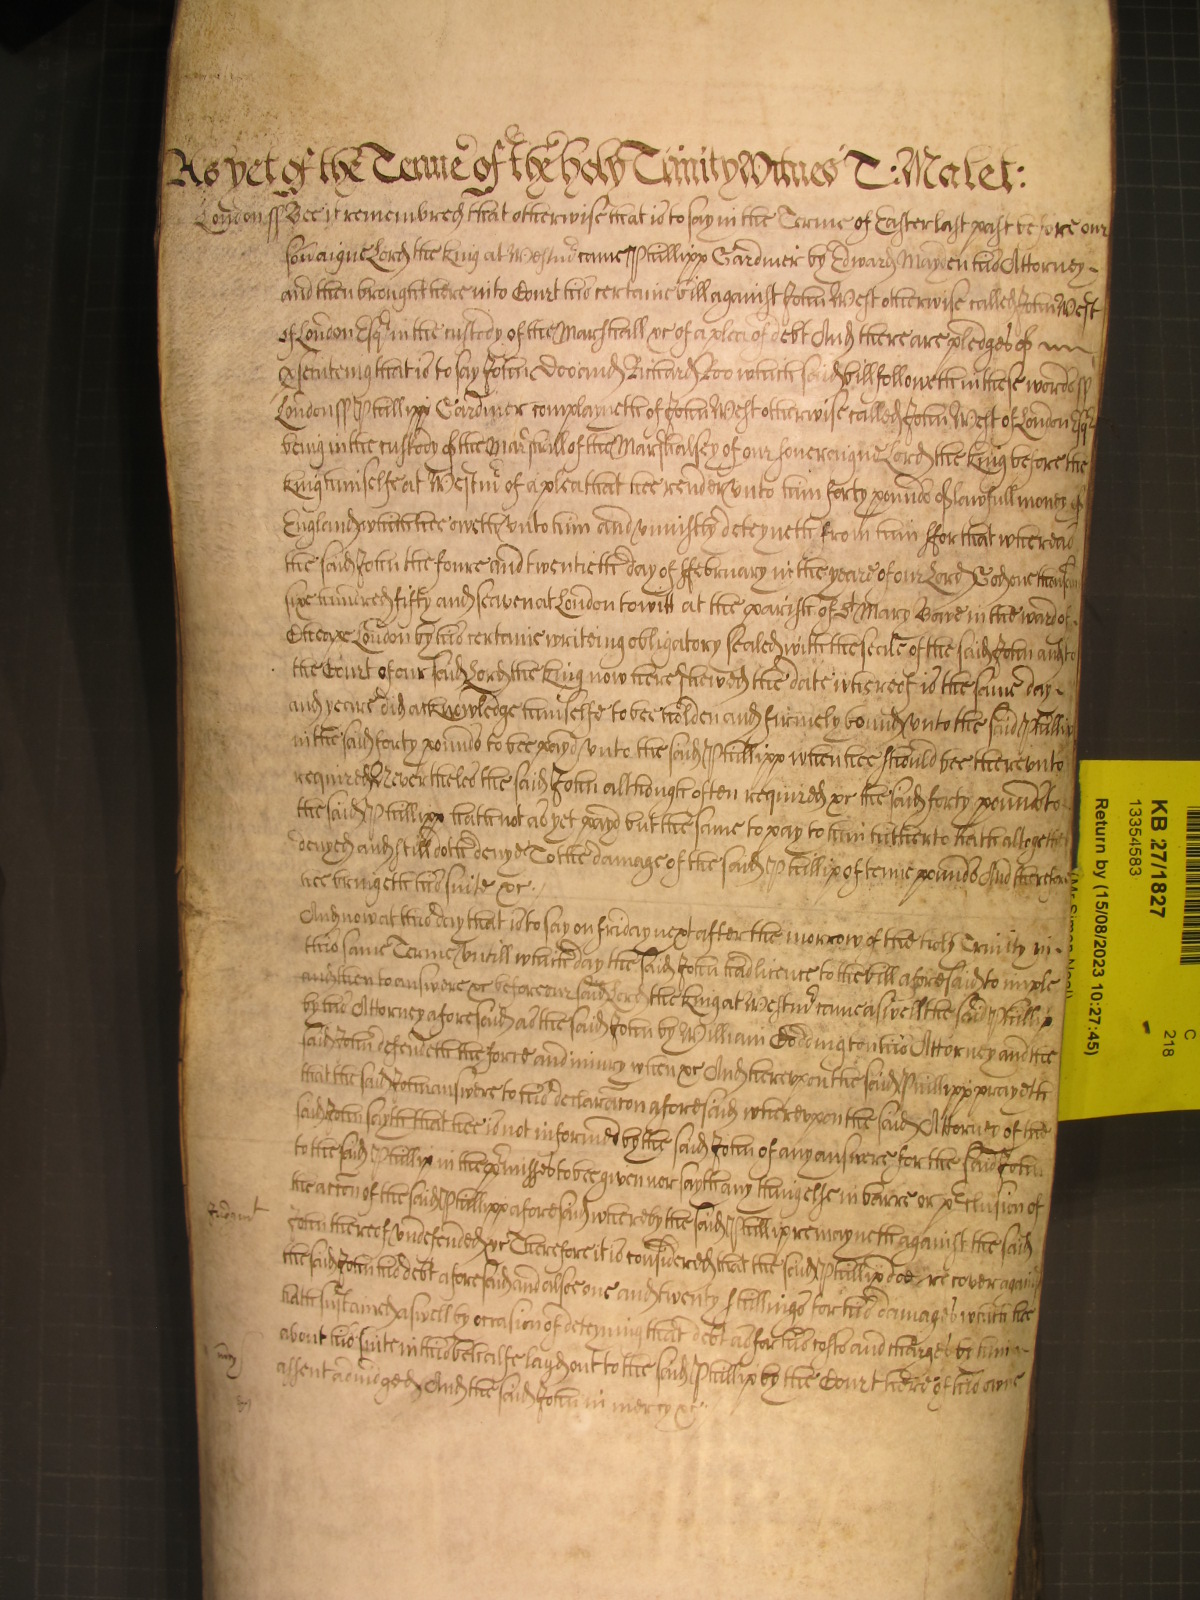 As yet of the Terme of the holy Trinity Witnes T: Malet:
London ss Bee it remembred that otherwise that is to say in the Terme of Easter last past before our
Sovaigne Lord the King at Westmr came Phillipp Gardiner by Edward Mayden his Attorney
and then brought here into Court his certaine bill against John West otherwise called John West
of London Esqr in the custody of the Marshall &c of a plea of debt And there are pledges of
Prosecuteing that is to say John Doo and Richard Roo which said bill followeth in these words ss
London ss Phillipp Gardiner complayneth of John West otherwise called John West of London Esqr
being in the custody of the Marshall of the Marshalsey of our Sovereigne Lord the King before the
King himselfe at Westmr of a plea that hee render unto him forty pounds of lawfull money of
England which hee oweth unto him and uniustly deteyneth from him ffor that whereas
the said John the foure and twentieth day of ffebruary in the yeare of our Lord God one thousand
six hundred fifty and seaven at London to witt at the parish of St Mary Bowe in the ward of
Cheape London by his certaine writeing obligatory sealed with the seale of the said John and to
the Court of our said Lord the King now here shewed the date whereof is the same day
and yeare did acknowledge himselfe to bee holden and firmely bound unto the said Phillip
in the said forty pounds to bee payd unto the said Phillipp when hee should bee thereunto
required Neverthelesse the said John although often required &c the said forty pounds to
the said Phillipp hath not as yet payd but the same to pay to him hitherto hath altogether
denyed and still doth deny To the damage of the said Phillip of tenne pounds And therefore
hee bringeth his suite &c.
And now at this day that is to say on friday next after the morrow of the holy Trinity in
this same Terme untill which day the said John had licence to the bill aforesaid to imple
and then to answere &c before our said Lord the King at Westmr came aswell the said Phillip
by his Attorney aforesaid as the said John by William Doddington his Attorney and the
said John defendeth the force and iniury when &c And thereupon the said Phillipp prayeth
that the said John answere to his declaracon aforesaid whereupon the said Attorney of the
said John sayth that hee is not informed by the said John of any answere for the said John
to the said Phillip in the pmisses to bee given nor sayth any thing else in barre or pclusion of
the accon of the said Phillipp aforesaid whereby the said Phillip remayneth against the said
Judgmt
John thereof undefended &c Therefore it is considered that the said Phillip doe recover against
the said John his debt aforesaid and alsoe one and twenty shillings for his damages which hee
hath susteined aswell by occasion of deteyning that debt as for his costs and charges by him
mcy
about his suite in this behalfe layd out to the said Phillip by the Court here of his owne
assent adiudged And the said John in mercy &c.
KB 27/1827
13354583
Return by (15/08/2023 10:27:45)
C
218